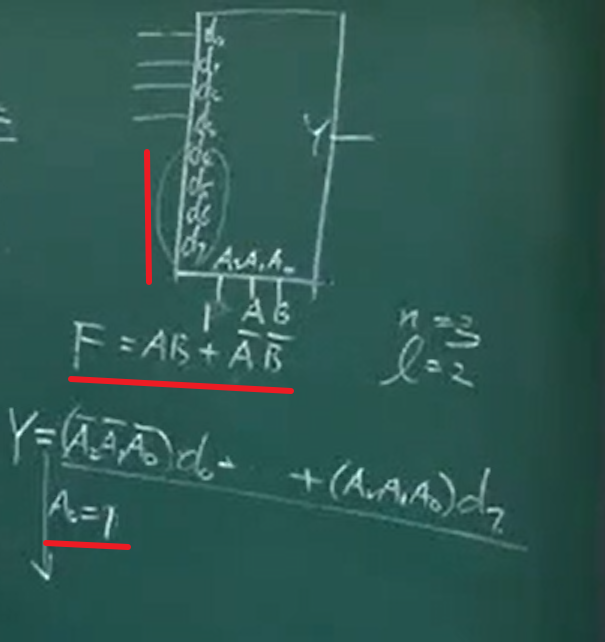 d₀
d₁
d₂
d₃
Y
d₄
d₅
d₆
d₇
A₂A₁A₀
1 A B
F = AB + A̅ B̅
n = 3
l = 2
Y = (A̅₂A̅₁A̅₀)d₀ + (A₂A₁A₀)d₇
A₂=1